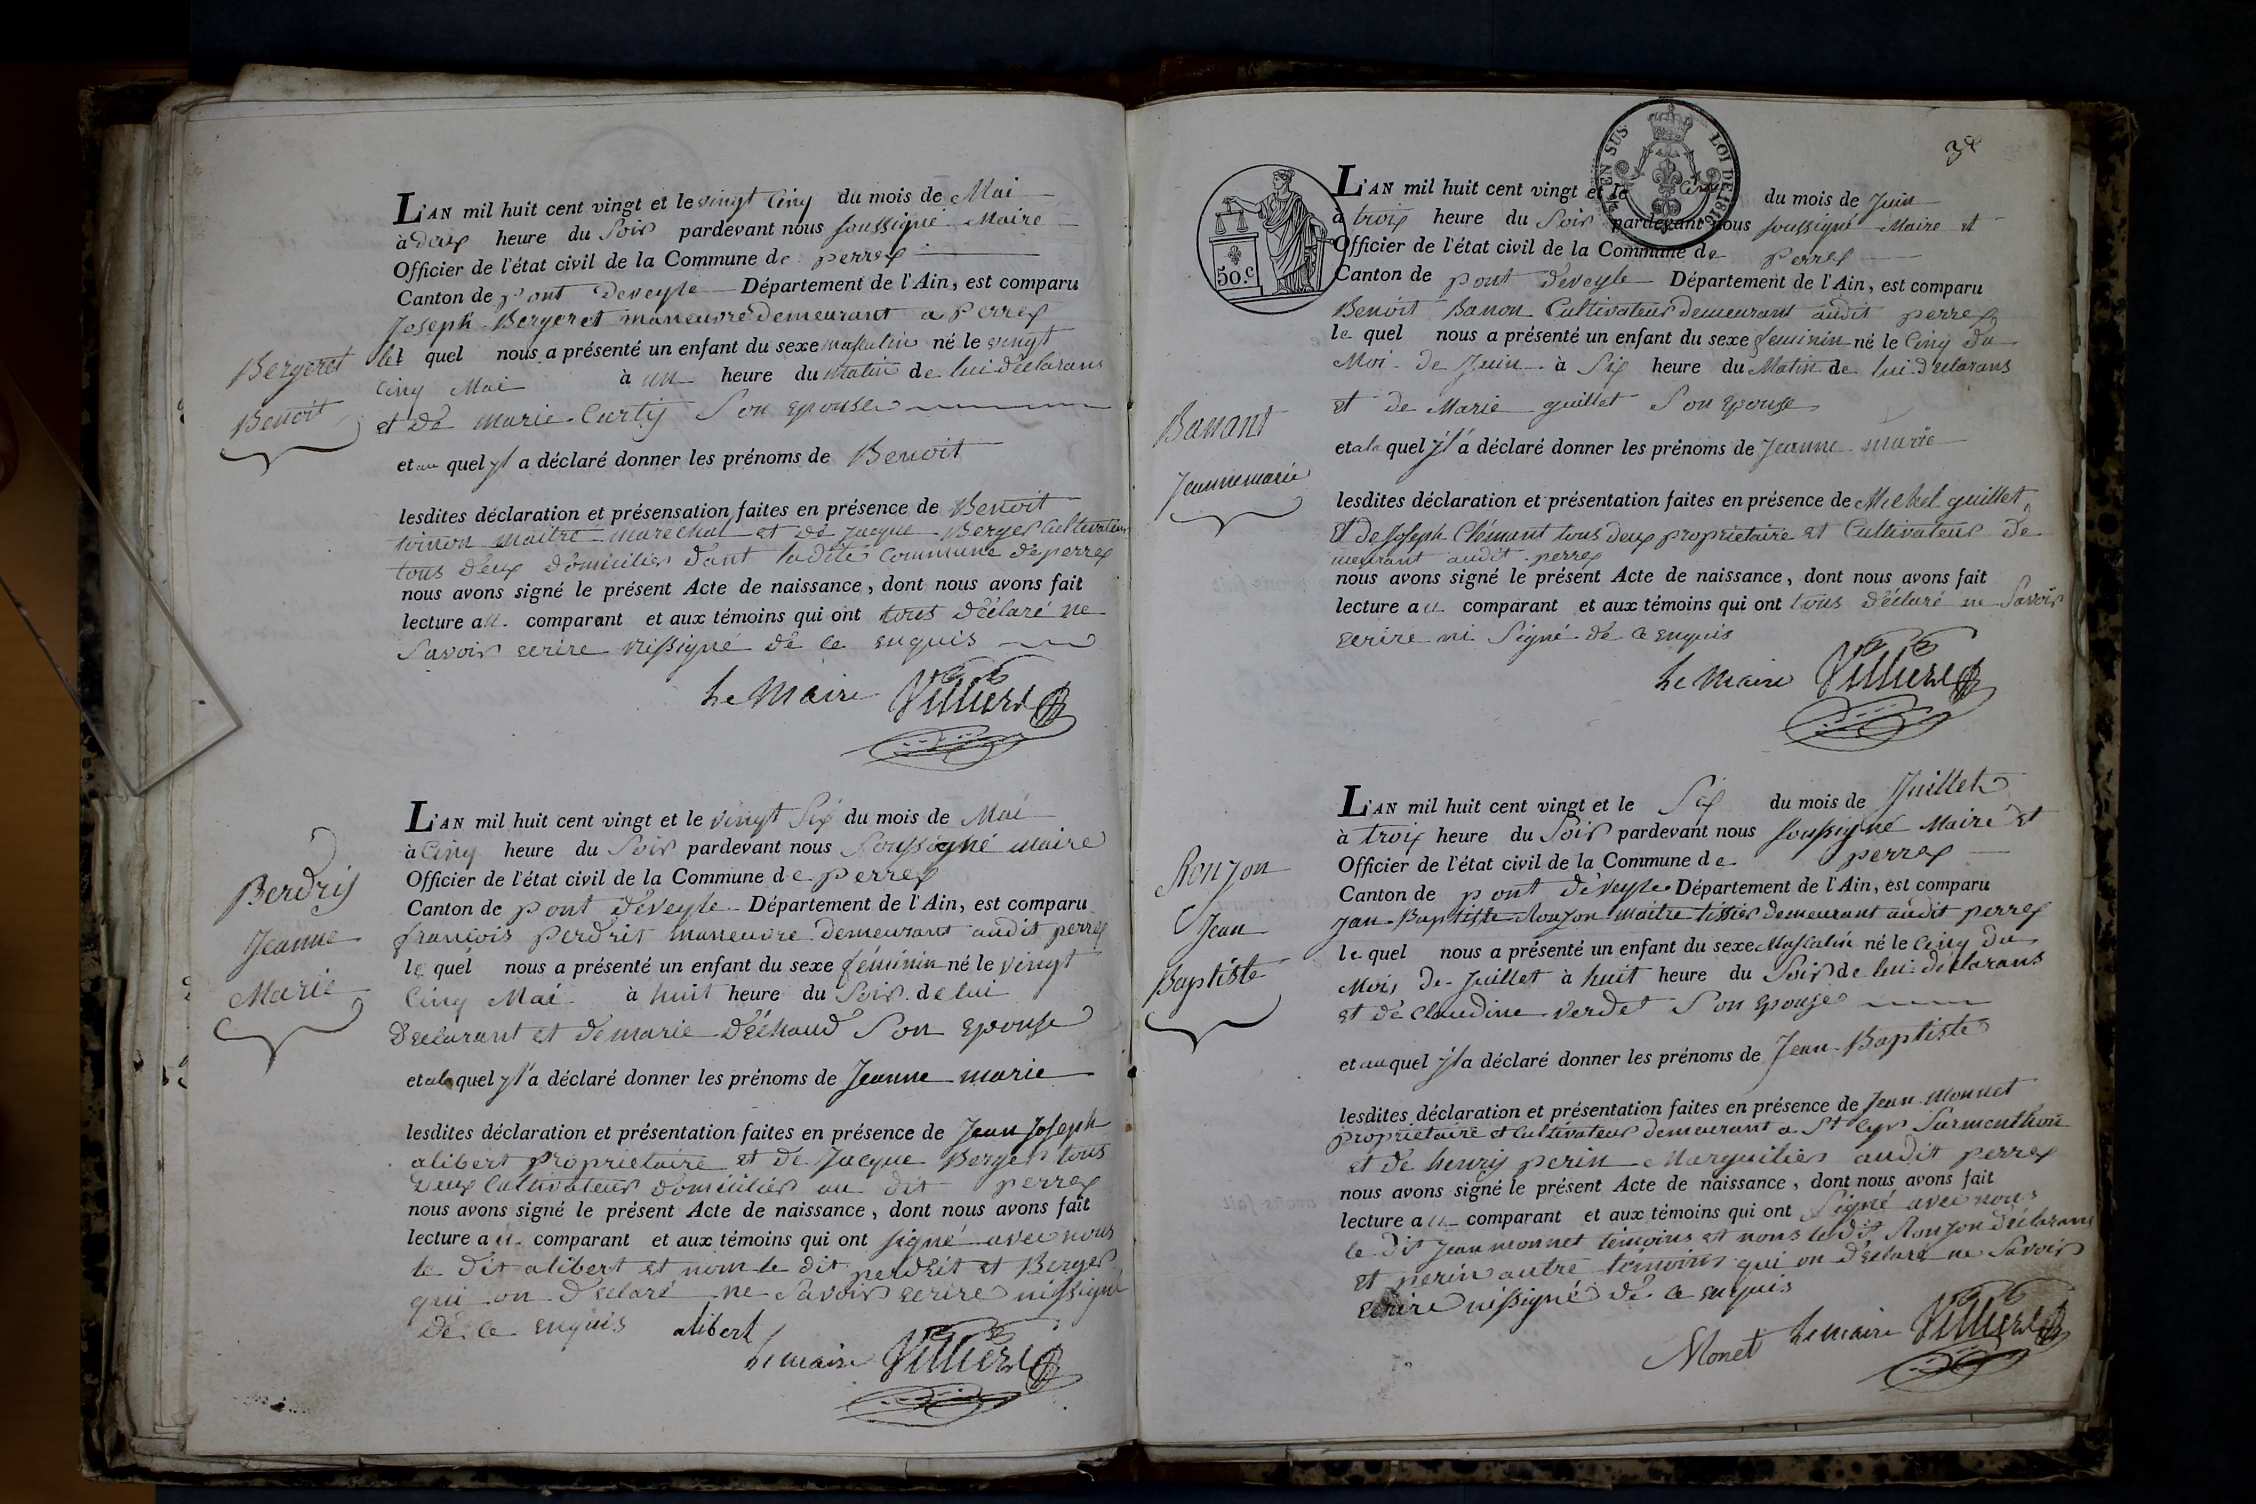 L'AN mil huit cent vingt et le vingt Cinq du mois de Mai
à deux heure du Soir pardevant nous Soussigné Maire
Officier de l'état civil de la Commune de perrex
Canton de pont deveyle Département de l'Ain, est comparu
Joseph Bergeret maneuvre demeurant a Perrex
lel quel nous a présenté un enfant du sexe masculin né le vingt
Cinq Mai à un heure du Matin de lui déclarans
et de marie Curtij Son epouse
et au quel yl a déclaré donner les prénoms de Benoit
lesdites déclaration et présensation faites en présence de Benoit
maitre maréchal et de jacque Berger Cultivateur
tous deux domicilier dant ladite Commune de perrex
nous avons signé le présent Acte de naissance, dont nous avons fait
lecture au comparant et aux témoins qui ont tous déclaré ne
Savoir ecrire nissigné de ce enquis
Le Maire Villierd
Bergeret
Benoit
L'AN mil huit cent vingt et le vingt Six du mois de Mai
à Cinq heure du Soir pardevant nous Soussigné Maire
Officier de l'état civil de la Commune de perrex
Canton de pont deveyle Département de l'Ain, est comparu
françois perdrit maneuvre demeurant audit perrex
le quel nous a présenté un enfant du sexe féminin né le vingt
Cinq Mai à huit heure du Soir de lui
Déclarant et de marie Déchaud Son epouse
et ala quel yl a déclaré donner les prénoms de Jeanne marie
lesdites déclaration et présentation faites en présence de Jean Joseph
alibert proprietaire et de Jacque Berger tous
deux Cultivateur domicilier au dit perrex
nous avons signé le présent Acte de naissance, dont nous avons fait
lecture au comparant et aux témoins qui ont signé avec nous
le dit alibert et nom le dit perdrit et Berger
qui on déclaré ne Savoir ecrire nissigné
de ce enquis alibert
Le maire Villierd
Berdrij
Jeanne
Marie
3e
EN SUS LOI DE 1816
50.c
L'AN mil huit cent vingt et le Cinq du mois de Juin
à troix heure du Soir pardevant nous soussigné Maire et
Officier de l'état civil de la Commune de perrex
Canton de pont deveyle Département de l'Ain, est comparu
Benoit Banon Cultivateur demeurant audit perrex
le quel nous a présenté un enfant du sexe feminin né le Cinq du
Moi de Juin à Six heure du Matin de lui déclarans
et de Marie guillet Son epouse
et ala quel yl a déclaré donner les prénoms de Jeanne marie
lesdites déclaration et présentation faites en présence de Michel guillet
et de Joseph Clémant tous deux proprietaire et Cultivateur de
meurant audit perrex
nous avons signé le présent Acte de naissance, dont nous avons fait
lecture au comparant et aux témoins qui ont tous déclaré ne Savoir
ecrire ni Signé de ce enquis
Le Maire Villierd
Banant
Jeannemarie
L'AN mil huit cent vingt et le Six du mois de Juillet
à troix heure du Soir pardevant nous soussigné Maire et
Officier de l'état civil de la Commune de perrex
Canton de pont deveyle Département de l'Ain, est comparu
Jan Baptiste Ronzon maitre tissier demeurant audit perrex
le quel nous a présenté un enfant du sexe Masculin né le Cinq du
Mois de Juillet à huit heure du Soir de lui déclarans
et de Claudine verdet Son epouse
et au quel yl a déclaré donner les prénoms de Jean Baptiste
lesdites déclaration et présentation faites en présence de Jean Monnet
proprietaire et Cultivateur demeurant a St Cyr Surmenthon
et de henrij perin Marguilier audit perrex
nous avons signé le présent Acte de naissance, dont nous avons fait
lecture au comparant et aux témoins qui ont Signé avec nous
le dit Jean monnet temoins et nons ledit Ronzon déclarans
et perin autre témoins qui on déclaré ne Savoir
ecrire nissigné de ce enquis
Monet Le maire Villierd
Ronzon
Jean
Baptiste